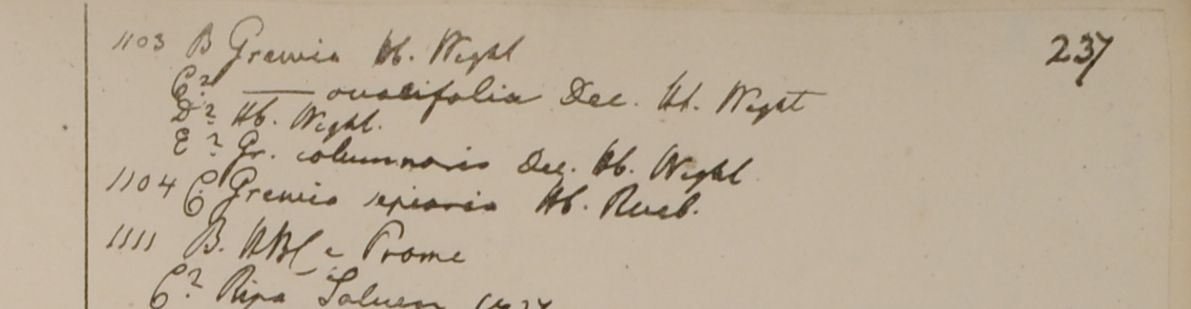 1103 B Grewia Hb. Wight 237
C? —— ovalifolia Dec. Hb. Wight
D? Hb. Wight.
E? Gr. columnaris Dec. Hb. Wight
1104 C Grewia sepiaria Hb. Roxb.
1111 B. HBC e Prome
C? Ripa Saluen